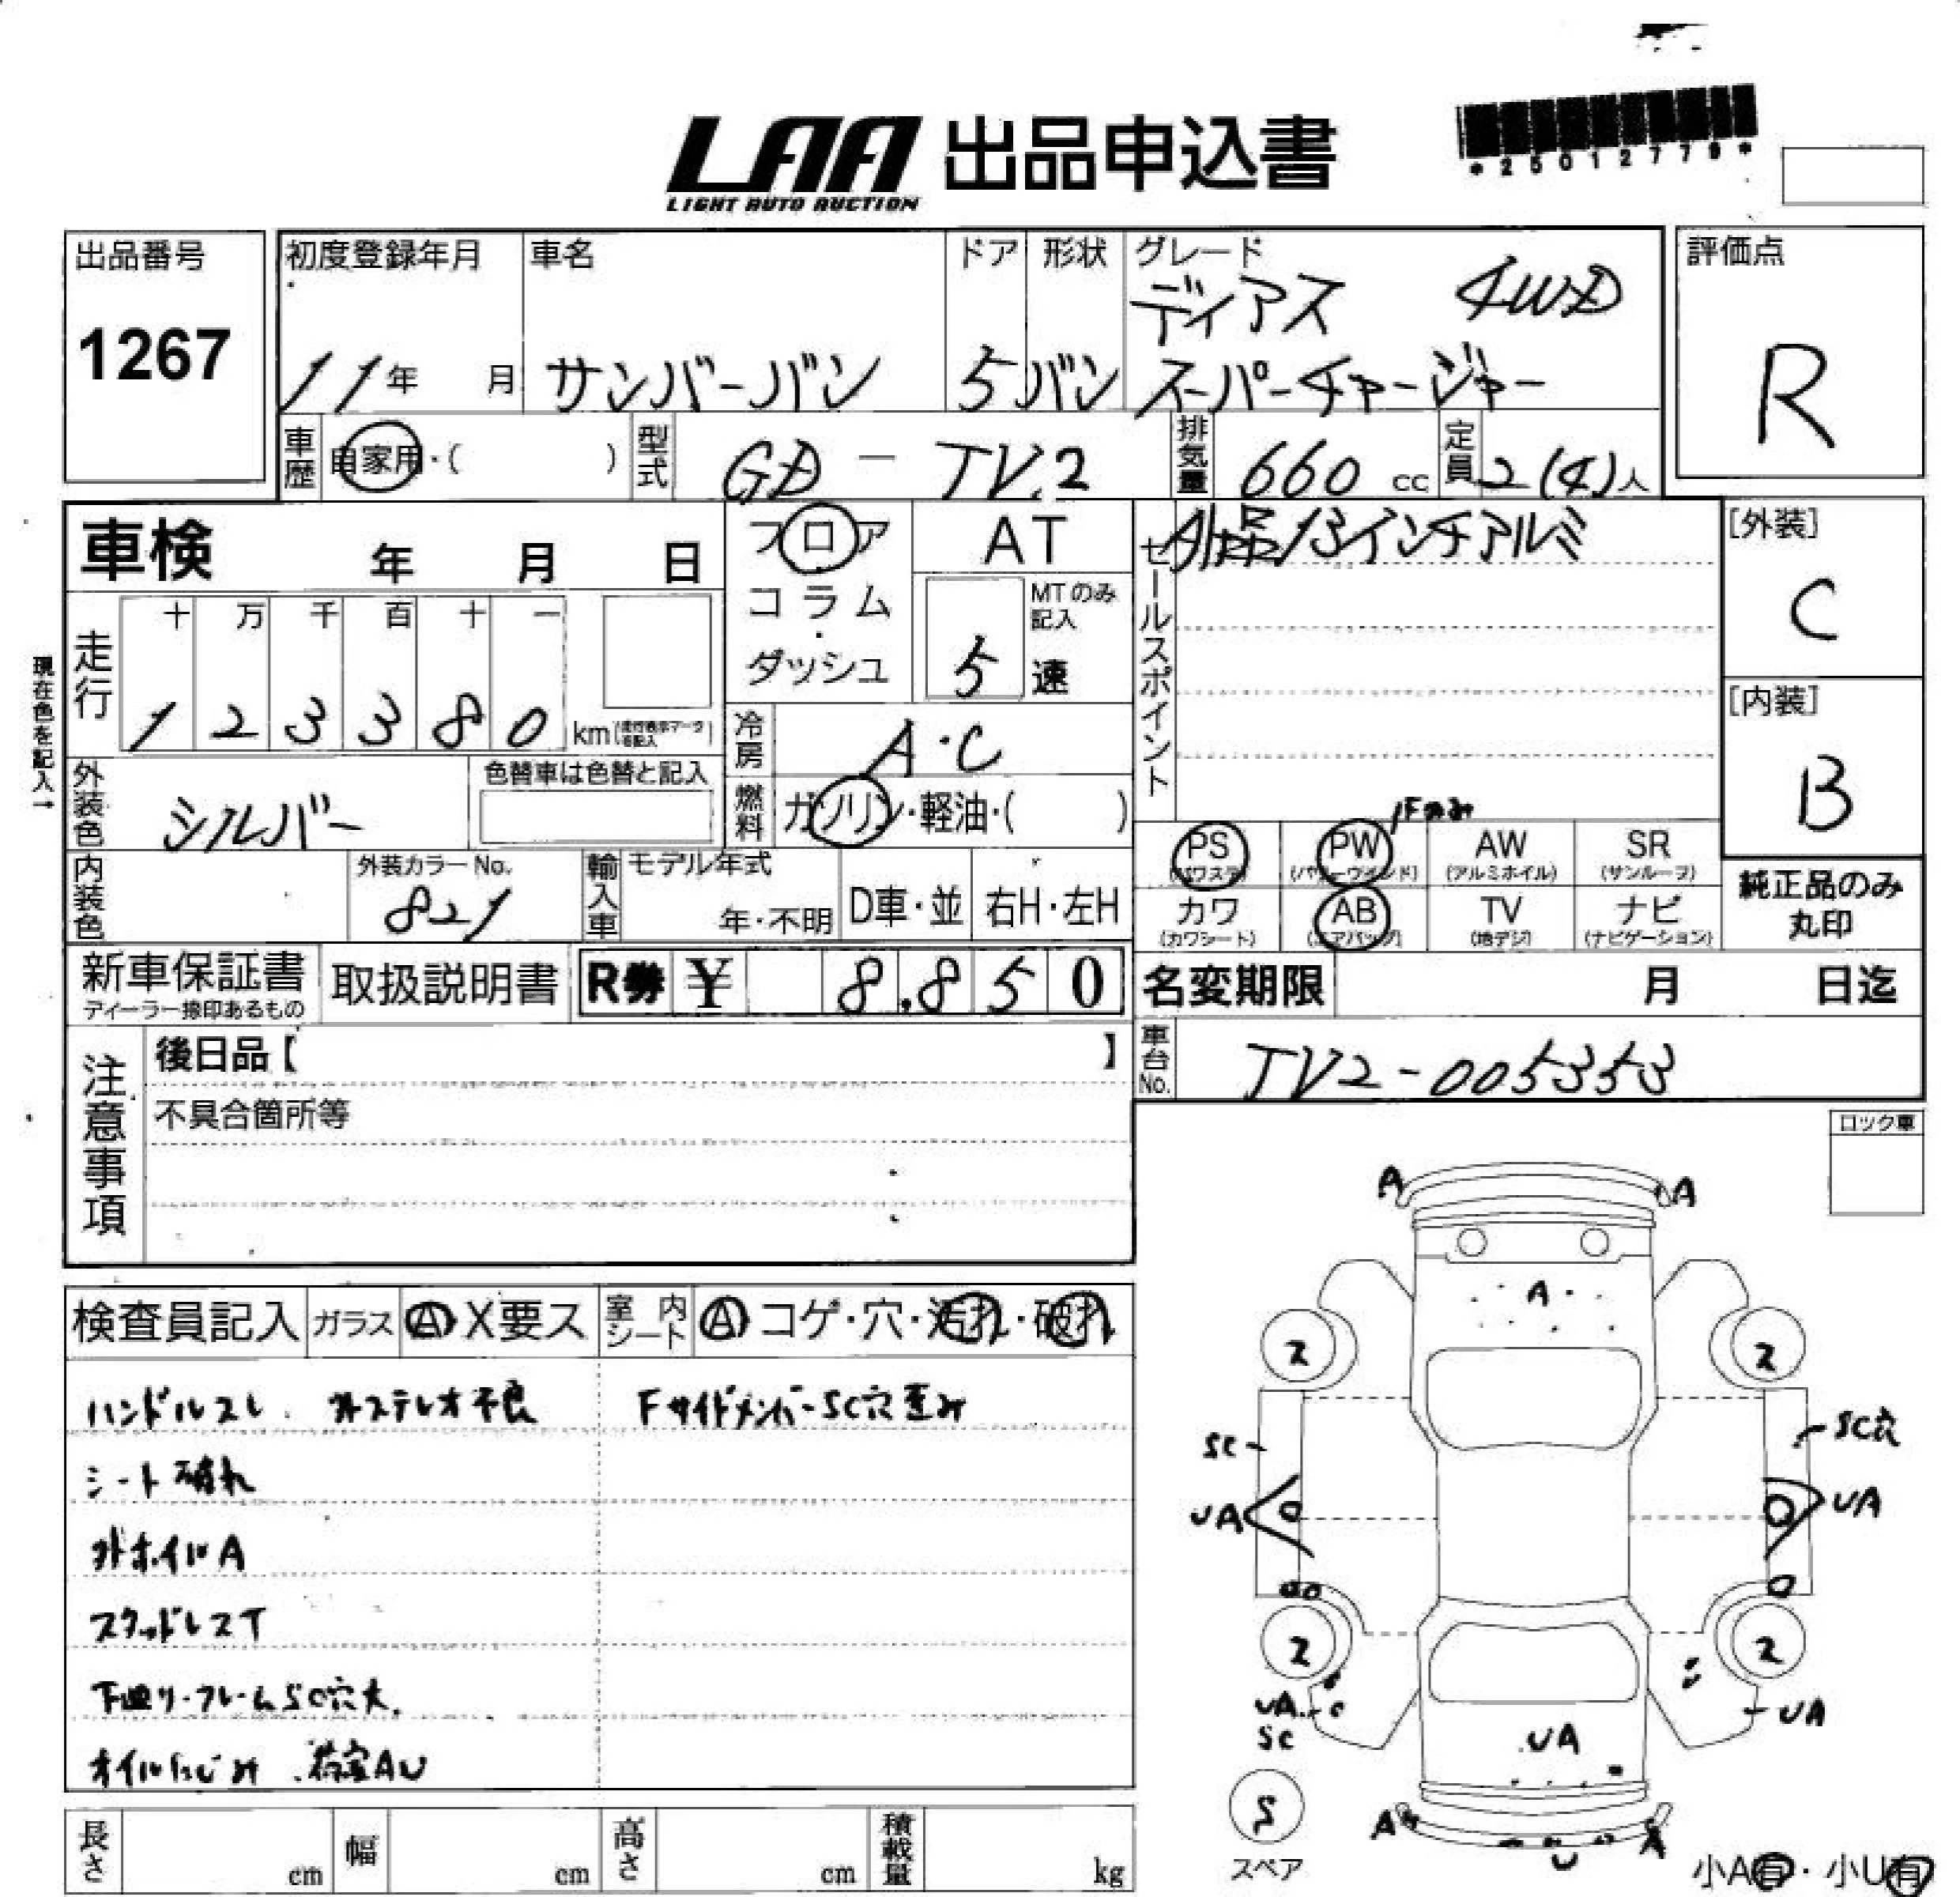 LAA 出品申込書
LIGHT AUTO AUCTION
*25012779*
出品番号
1267
初度登録年月
11年 月
車名
サンバーバン
ドア
5
形状
バン
グレード
ディアス 4WD
スーパーチャージャー
評価点
R
車歴
自家用・( )
型式
GD - TV2
排気量
660 cc
定員
2(4)人
車検 年 月 日
フロア
コラム
・
ダッシュ
AT
MTのみ
記入
5 速
セールスポイント
外品13インチアルミ
[外装]
C
[内装]
B
純正品のみ
丸印
現在色を記入→
走行
十 万 千 百 十 一
1 2 3 3 8 0 km
冷房
A・C
燃料
ガソリン・軽油・( )
外装色
シルバー
色替車は色替と記入
内装色
外装カラーNo.
821
輸入車
モデル年式
年・不明
D車・並
右H・左H
Fのみ
PS
(パワステ)
PW
(パワーウインド)
AW
(アルミホイル)
SR
(サンルーフ)
カワ
(カワシート)
AB
(エアバッグ)
TV
(地デジ)
ナビ
(ナビゲーション)
新車保証書
ディーラー捺印あるもの
取扱説明書
R券 ¥ 8,850
名変期限 月 日迄
車台No.
TV2-005353
注意事項
後日品【 】
不具合箇所等
ロック車
検査員記入
ガラス
A X要ス
室内シート
A コゲ・穴・汚れ・破れ
ハンドルスレ. 外ステレオ不良
Fサイドメンバー SC穴歪み
シート破れ
外ホイルA
スタッドレスT
下廻り・フレームSC穴大.
オイルにじみ 、荷室AU
A
A
A
2
2
SC
SC穴
UA
UA
2
2
UA
SC
UA
UA
S
スペア
A
A
U
小A有・小U有
長さ cm
幅 cm
高さ cm
積載量 kg